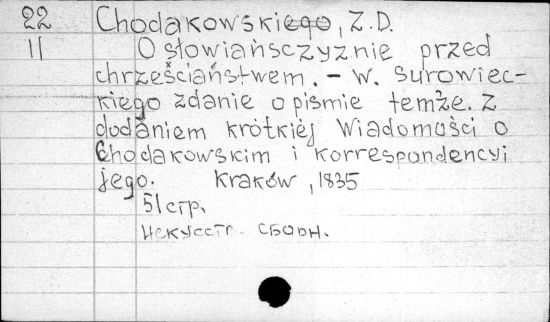 22 Chodakowskiego, Z.D.
11 O słowiańsczyznie przed
chrześciaństwem. – W. Surowiec-
kiego zdanie o piśmie temże. Z
dodaniem krótkiéj Wiadomości o
Chodakowskim i korrespondencyi
jego. Kraków, 1835
51 стр.
Искусств. сборн.